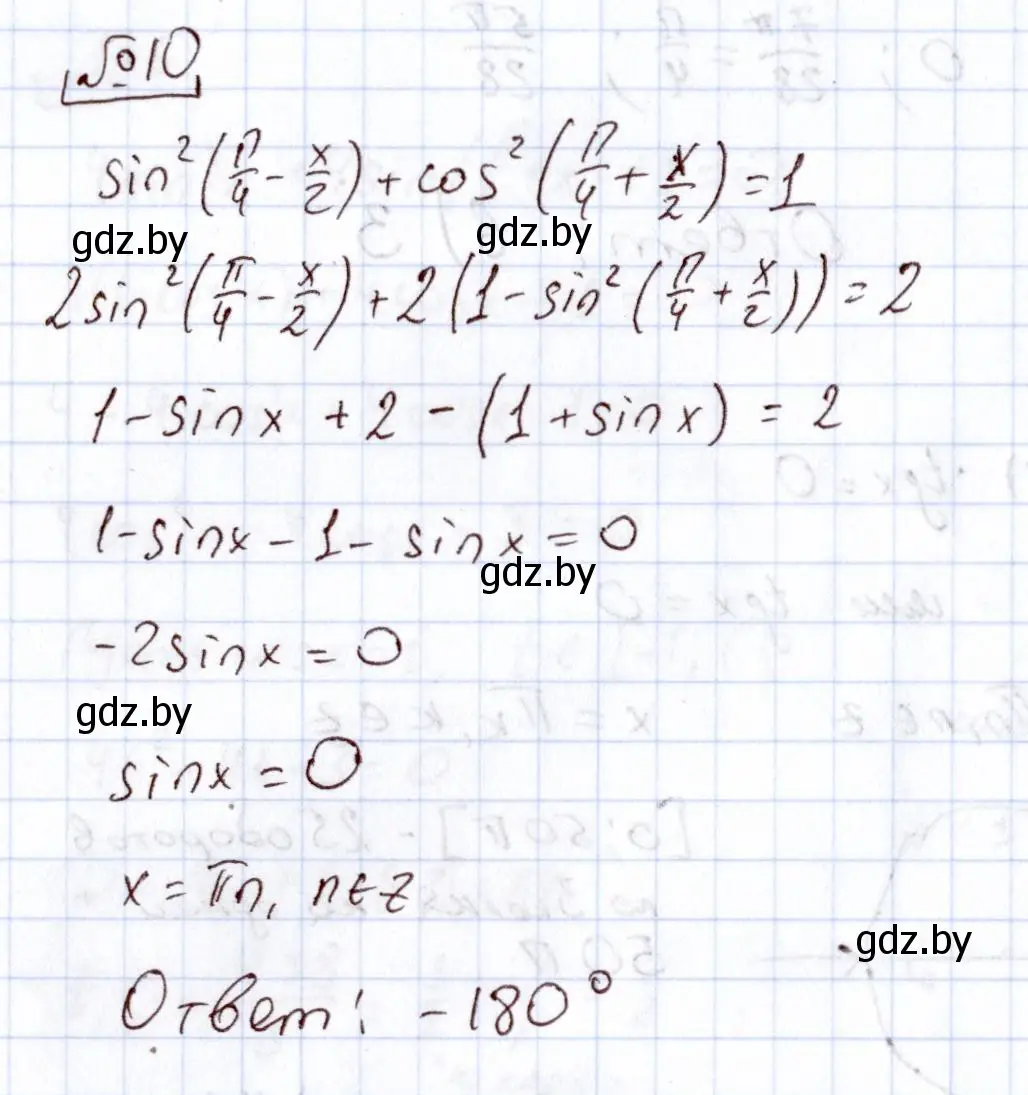 №10
sin²(π/4 - x/2) + cos²(π/4 + x/2) = 1
gdz.by gdz.by
2sin²(π/4 - x/2) + 2(1 - sin²(π/4 + x/2)) = 2
1 - sinx + 2 - (1 + sinx) = 2
1 - sinx - 1 - sinx = 0
gdz.by
-2sinx = 0
gdz.by
sinx = 0
x = πn, n∈z
gdz.by
Ответ: -180°